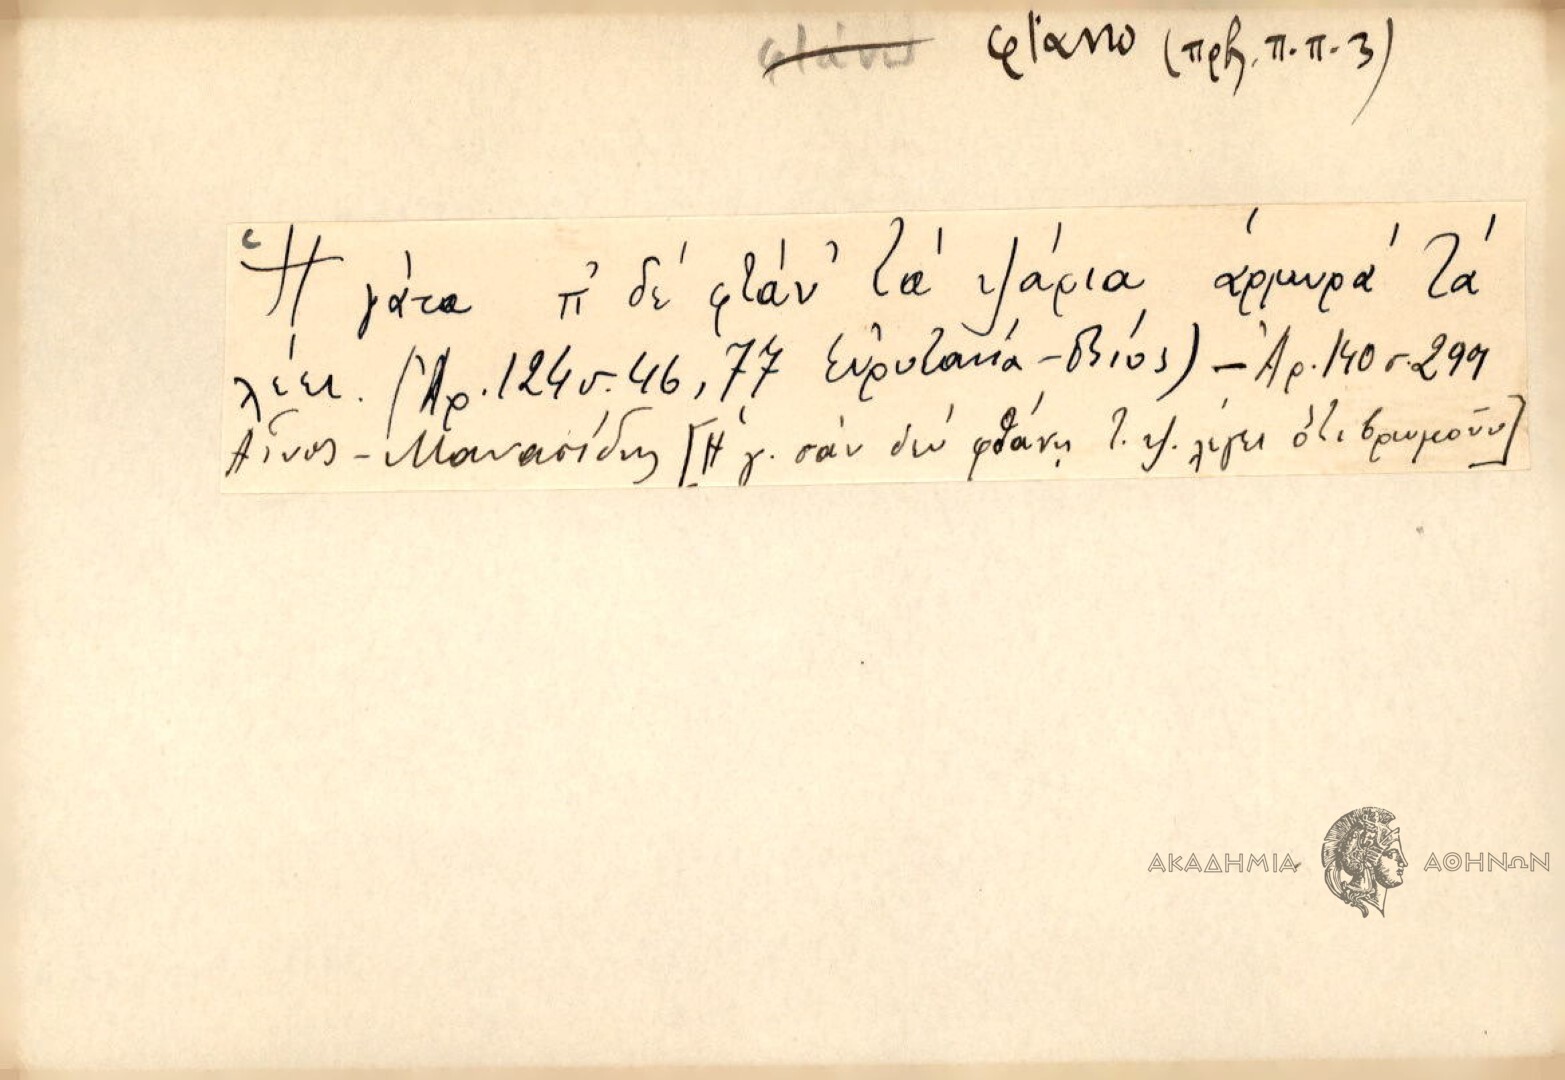 φτάνω φτάνω (πρβ. π.π. 3)
Ἡ γάτα π' δέ φτάν' τά ψάρια ἁρμυρά τά
λέει. (Ἀρ. 124 σ. 46, 77 Εὐρυτανία - Βίος) - Ἀρ. 140 σ. 299
Αἶνος - Μανασείδης [Ἡ γ. σάν δέν φθάνῃ τ. ψ. λέγει ὅτι βρωμοῦν]
ΑΚΑΔΗΜΙΑ ΑΘΗΝΩΝ